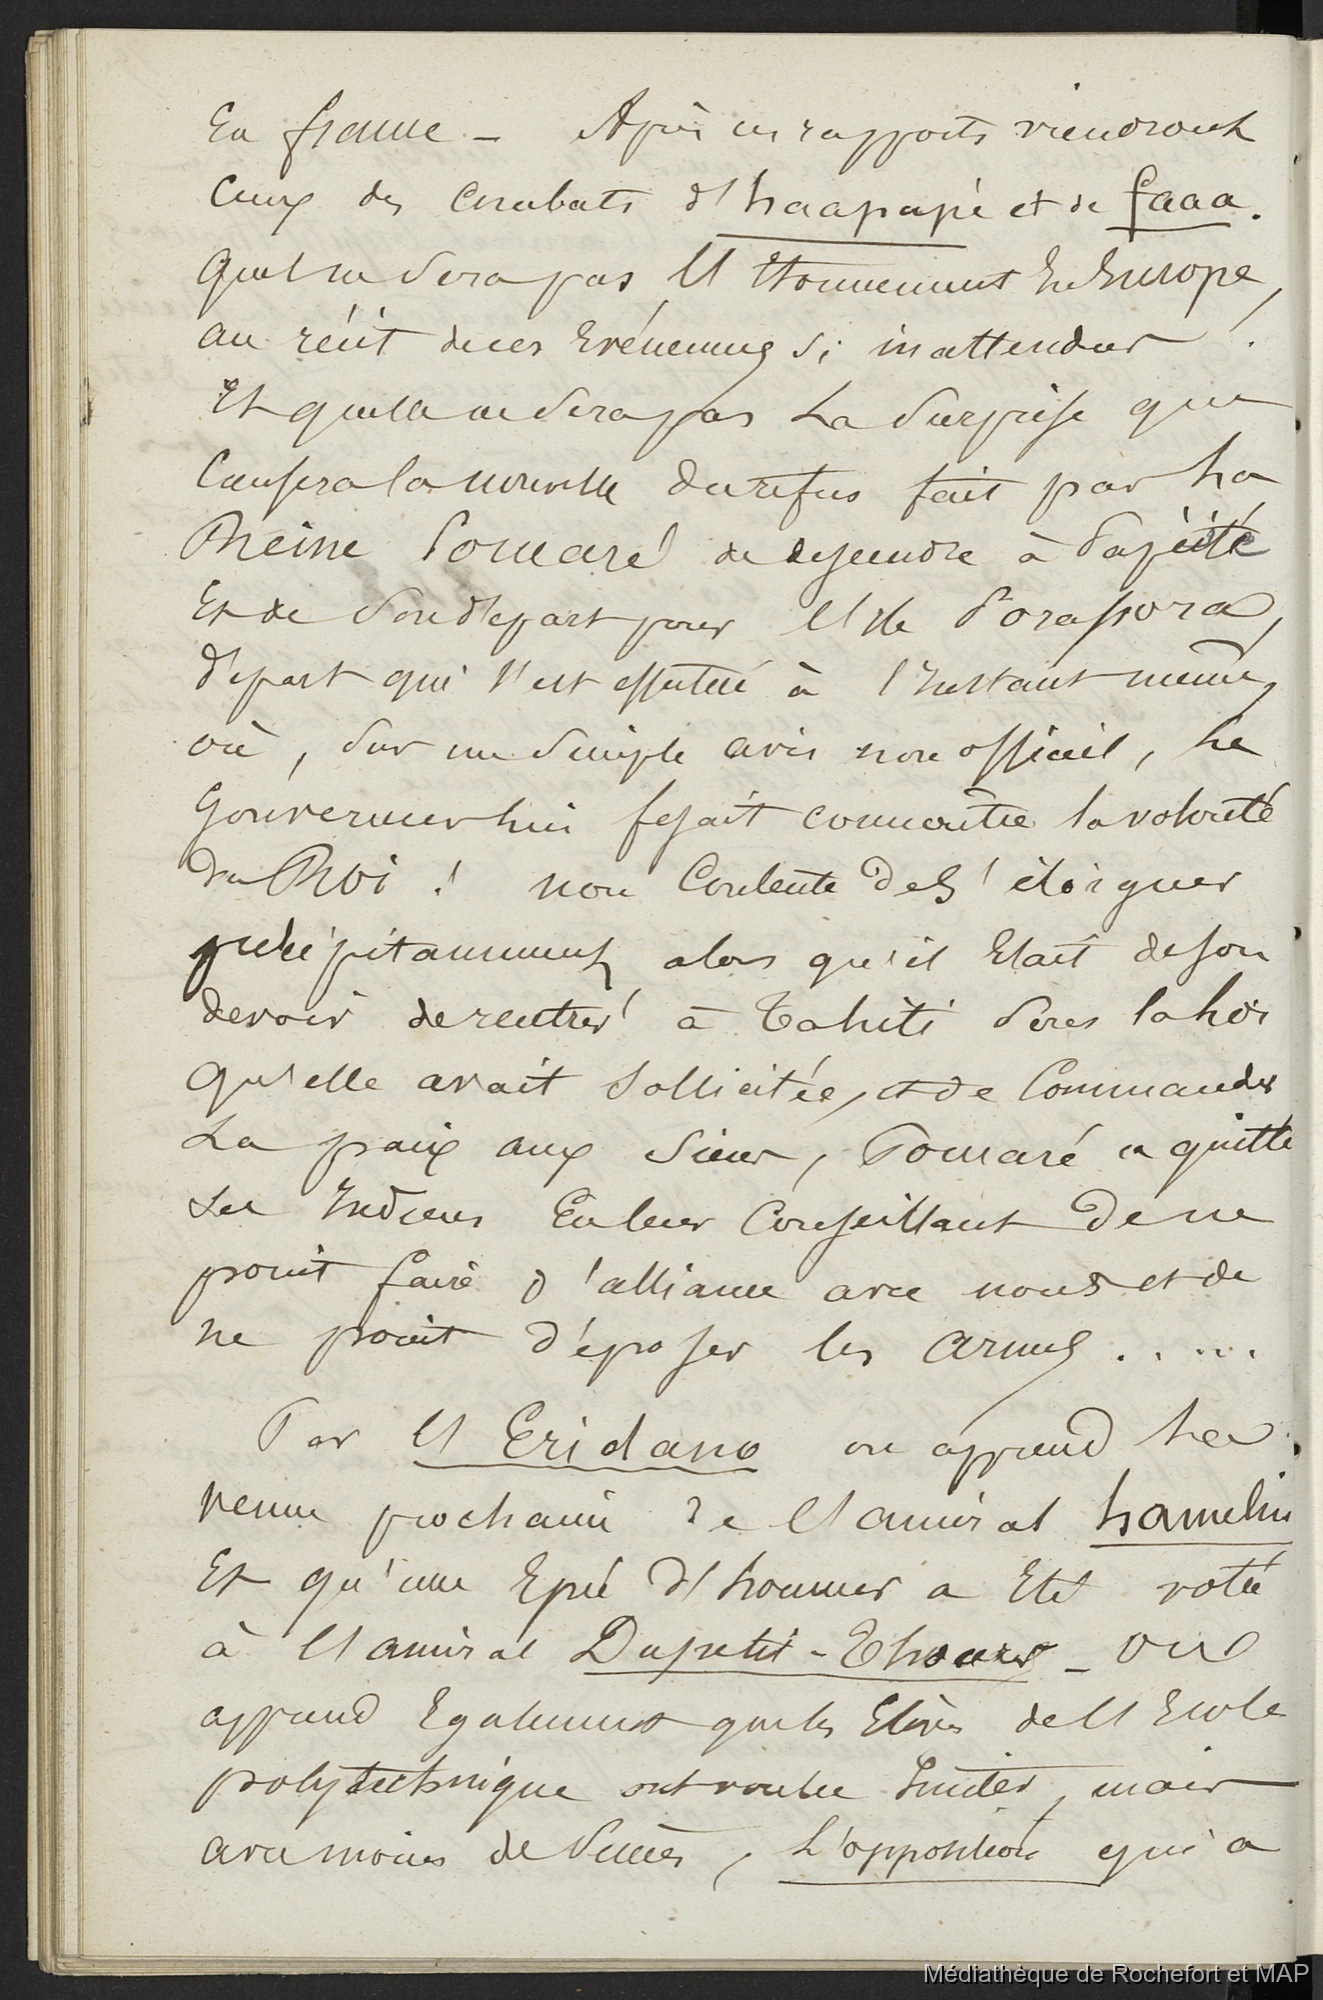 En france – Après ces rapports viendront
Ceux des Combats d'haapapé et de faaa.
Quel ne Sera pas l'Etonnement En Europe,
au récit de ces Evénemens Si inattendus !
Et quelle ne Sera pas La Surprise que
Causera la nouvelle du refus fait par La
Reine Pomaré de descendre à Papéïté
Et de Son départ pour l'Ile Borabora,
départ qui s'est effectué à l'Instant même,
où, Sur un Simple avis non officiel, Le
Gouverneur lui fesait connaître la volonté
du Roi ! non Contente de S'éloigner
précipitamment, alors qu'il Etait de son
devoir de rentrer à Tahiti Sous la loi
qu'elle avait Sollicitée, et de Commander
La paix aux Siens, Pomaré a quitté
Les Indiens En leur Conseillant De ne
point faire d'alliance avec nous et de
ne point déposer les armes .....
Par l'Eridano on apprend La
venue prochaine de l'amiral hamelin
Et qu'une Epée d'honneur a Eté votée
à l'amiral Dupetit-Thouars – On
apprend Egalement que les Elèves de l'Ecole
polytechnique ont voulu Imiter, mais
avec moins de Succès, L'opposition qui a
Médiathèque de Rochefort et MAP